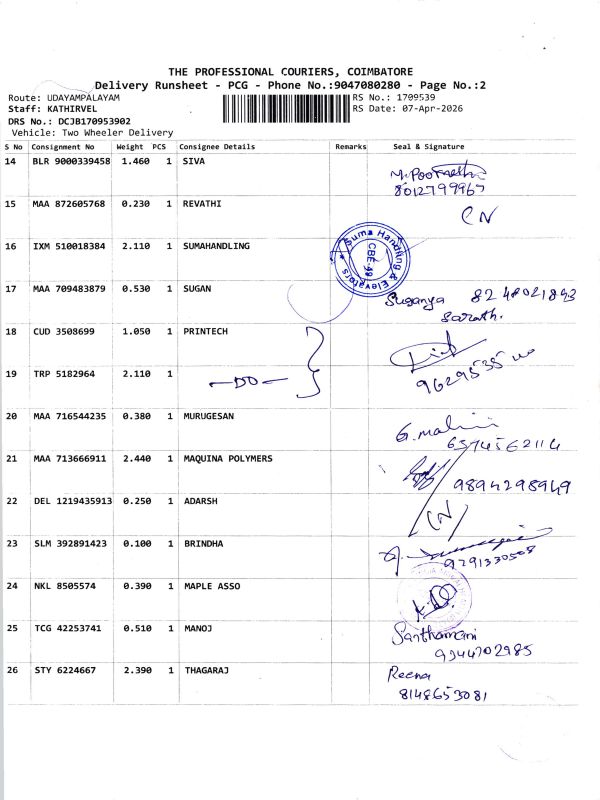 THE PROFESSIONAL COURIERS, COIMBATORE
Delivery Runsheet - PCG - Phone No.:9047080280 - Page No.:2
Route: UDAYAMPALAYAM
Staff: KATHIRVEL
DRS No.: DCJB170953902
Vehicle: Two Wheeler Delivery
RS No.: 1709539
RS Date: 07-Apr-2026
S No Consignment No Weight PCS Consignee Details Remarks Seal & Signature
14 BLR 9000339458 1.460 1 SIVA
8012799967
15 MAA 872605768 0.230 1 REVATHI CN
16 IXM 510018384 2.110 1 SUMAHANDLING
Suma Handling & Elevators
CBE-49
17 MAA 709483879 0.530 1 SUGAN Suganya 8248021893
Sarath.
18 CUD 3508699 1.050 1 PRINTECH
19 TRP 5182964 2.110 1 -DO-
20 MAA 716544235 0.380 1 MURUGESAN G.malini
6374562114
21 MAA 713666911 2.440 1 MAQUINA POLYMERS 9894298949
22 DEL 1219435913 0.250 1 ADARSH CN
23 SLM 392891423 0.100 1 BRINDHA
9791330508
24 NKL 8505574 0.390 1 MAPLE ASSO
25 TCG 42253741 0.510 1 MANOJ Santhamani
9944702985
26 STY 6224667 2.390 1 THAGARAJ Reena
8148653081